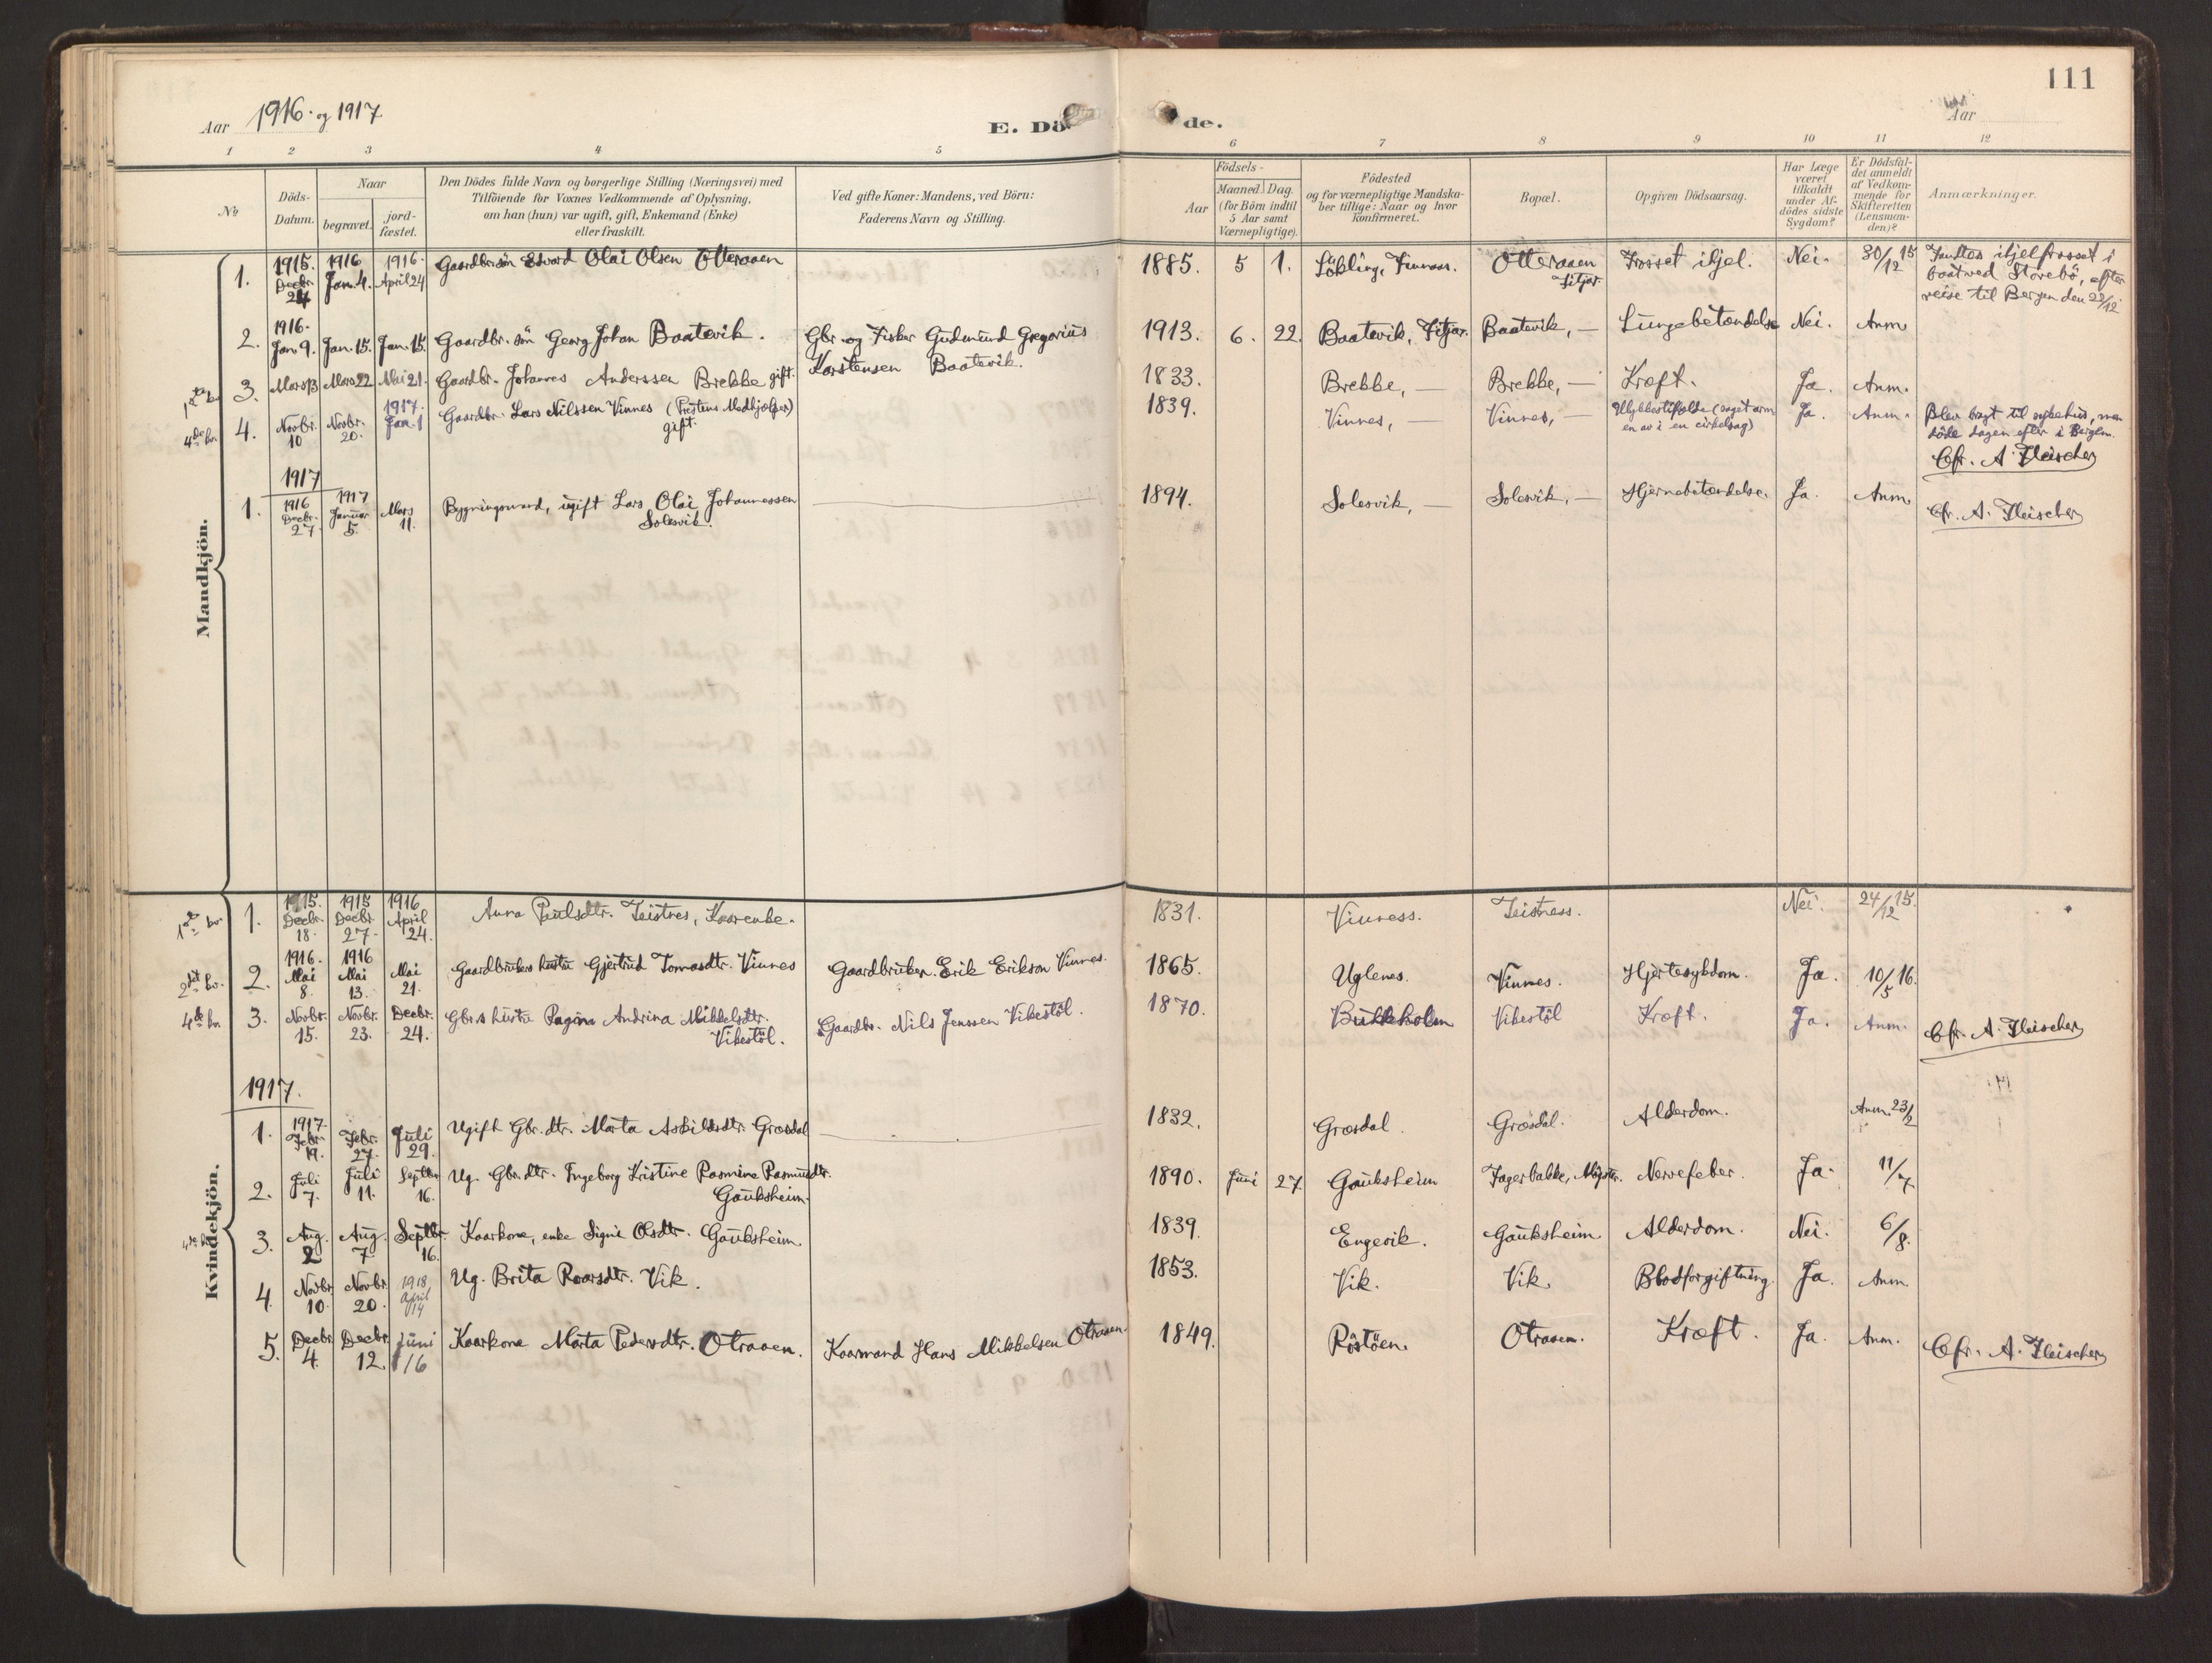 111
Aar 1916. og 1917
E. Dö de.
Aar
1 2 3 4 5 6 7 8 9 10 11 12
No
Döds-
Datum.
Naar
begravet.
jord-
fæstet.
Den Dödes fulde Navn og borgerlige Stilling (Næringsvei) med
Tilföiende for Voxnes Vedkommende af Oplysning,
om han (hun) var ugift, gift, Enkemand (Enke)
eller fraskilt.
Ved gifte Koner: Mandens, ved Börn:
Faderens Navn og Stilling.
Aar
Födsels-
Maaned. Dag.
(for Börn indtil
5 Aar samt
Værnepligtige).
Födested
og for værnepligtige Mandska-
ber tillige: Naar og hvor
konfirmeret.
Bopæl.
Opgiven Dödsaarsag.
Har Læge
været
tilkaldt
under Af-
dödes sidste
Sygdom?
Er Dödsfal-
det anmeldt
af Vedkom-
mende for
Skifteretten
(Lensman-
den)?
Anmærkninger.
Mandkjön.
1. 1915. Decbr. 1916 Jan. 4. 1916. April 24 Gaardbr. sön Edvard Olai Olsen Otteraaen 1885. 5 1. Lökling, Finnaas. Otteraaen Fitjar. Frosset ihjel. Nei. 30/12 15 Fandtes ihjelfrosset i
baat ved Storebö, efter
reise til Bergen den 22/12
2. 1916. Jan 9. Jan. 15. Jan. 15. Gaardbr. sön Georg Johan Baatevik. Gbr. og Fisker Gudmund Gregorius 1913. 6. 22. Baatevik, Fitjar. Baatevik, — Lungebetændelse Nei. Anm
Karstensen Baatevik.
3. Mars 13 Mars 22 Mai 21. Gaardbr. Johannes Anderssen Brekke gift. 1833. Brekke, — Brekke, — Kræft. Ja. Anm.
4de kv. 4. Novbr. 10 Novbr. 20. 1917. Jan. 1 Gaardbr. Lars Nilssen Vinnes (Prestens Medhjælper) 1839. Vinnes, — Vinnes, — Ulykkestilfælde (saget arm Ja. Anm. Blev bragt til sykehus, men
gift. en av i en cirkelsag) döde dagen efter i Bergen.
Cfr. A. Fleischer
1917
1. 1916 Decbr. 27. 1917 Januar 5. Mars 11. Bygningsmand, ugift Lars Olai Johannessen 1894. Solesvik, — Solesvik, — Hjernebetændelse. Ja. Anm.
Solesvik. Cfr. A. Fleischer
Kvindekjön.
1. 1915. Decbr. 18. 1915 Decbr. 27. 1916 April 24. Anna Paulsdtr. Teistnes, Kaarenke. 1831. Vinness. Teistness. Nei. 24/12 15.
2. 1916. Mai 8. 1916 Mai 13. Mai 21. Gaardbrukers hustru Gjertrud Tomasdtr. Vinnes Gaardbruker Erik Erikson Vinnes. 1865. Uglenes. Vinnes. Hjertesykdom. Ja. 10/5 16.
3. Novbr. 15. Novbr. 23. Decbr. 24. Gbr.s hustru Ragina Andrina Mikkelsdtr. Gaardbr. Nils Jenssen Vikestöl. 1870. Bukkholm Vikestöl Kræft. Ja. Anm. Cfr. A. Fleischer
Vikestöl.
1917.
1. 1917. Febr. 19. Febr. 27. Juli 29. Ugift Gbr. dtr. Marta Askildsdtr. Græsdal 1832. Græsdal. Græsdal. Alderdom. Anm. 23/2
2. Juli 7. Juli 11. Septbr 16. Ug. Gbr. dtr. Ingeborg Kristine Rasmine Rasmusdtr. 1890. Juni 27. Gauksheim Fagerbakke, Nervefeber. Ja. 11/7
Gauksheim.
3. Aug. 2 Aug. 7 Septbr. 16. Kaarkone, enke Signi Olsdtr. Gauksheim 1839. Engevik. Gauksheim Alderdom. Nei. 6/8.
4. Novbr 10. Novbr. 20. 1918 April 14 Ug. Brita Roarsdtr. Vik. 1853. Vik. Vik. Blodforgiftning. Ja. Anm.
5. Decbr. 4. Decbr. 12. Juni 16 Kaarkone Marta Pedersdtr. Otraaen. Kaarmand Hans Mikkelsen Otraaen. 1849. Röstöen. Otraaen. Kræft. Ja. Anm. Cfr. A. Fleischer